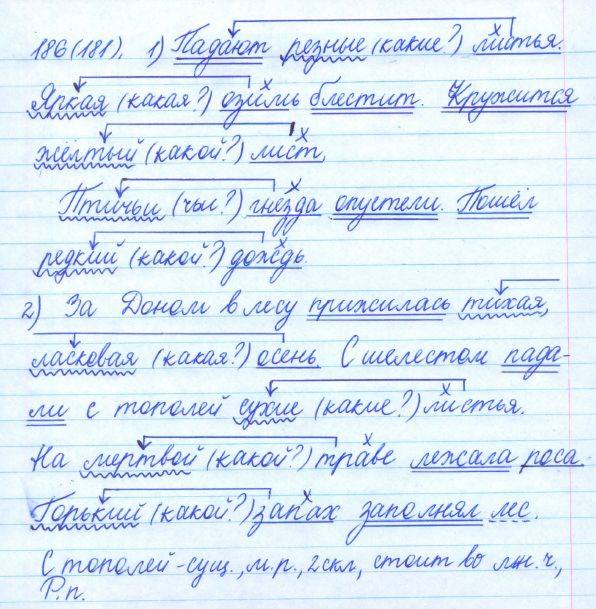 186(181). 1) Падают резные (какие?) листья.
Яркая (какая?) озимь блестит. Кружится
жёлтый (какой?) лист,
Птичьи (чьи?) гнёзда опустели. Пошёл
редкий (какой?) дождь.
2) За Доном в лесу прижилась тихая,
ласковая (какая?) осень. С шелестом пада-
ли с тополей сухие (какие?) листья.
На мертвой (какой?) траве лежала роса.
Горький (какой?) запах заполнял лес.
С тополей-сущ., м.р., 2скл, стоит во мн.ч.,
Р.п.